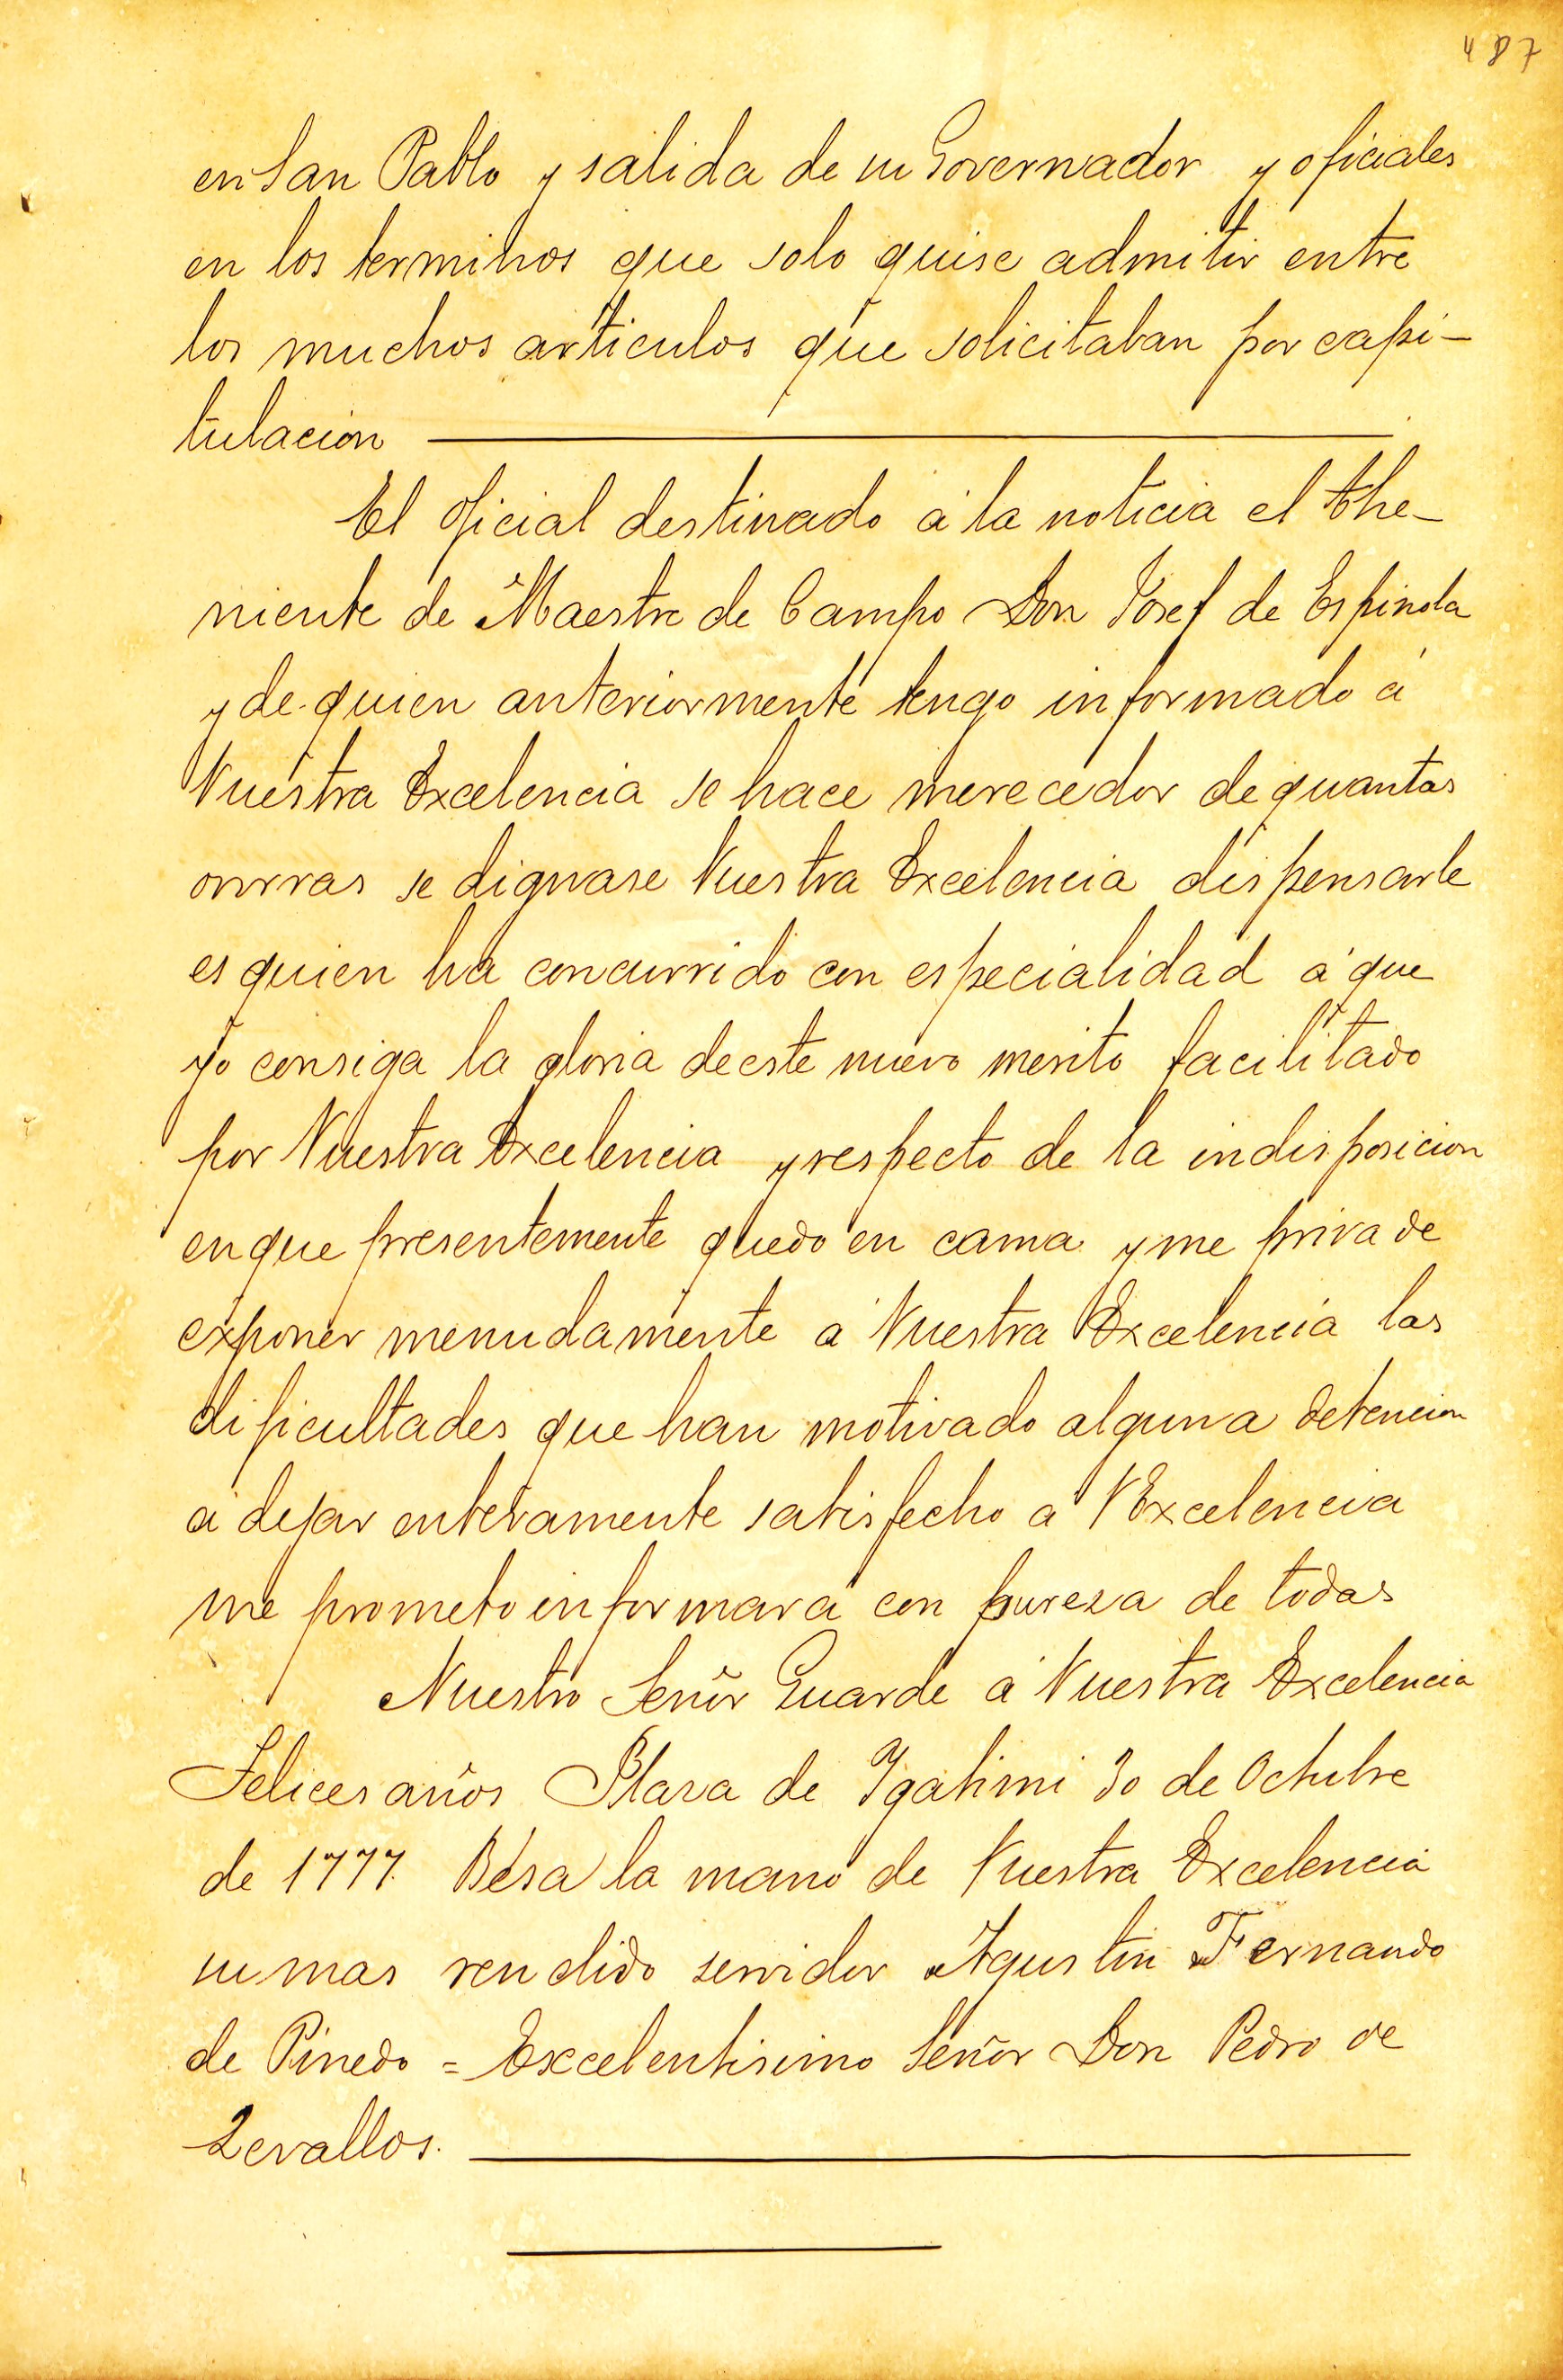 487
en San Pablo y salida de su Governador y oficiales
en los terminos que solo quise admitir entre
los muchos articulos que solicitaban por capi-
tulacion
El oficial destinado á la noticia el The-
niente de Maestre de Campo Don Josef de Espinola
y de quien anteriormente tengo informado á
Vuestra Excelencia se hace merecedor de quantas
onrras se dignase Vuestra Excelencia dispensarle
es quien ha concurrido con especialidad á que
yo consiga la gloria de este nuevo merito facilitado
por Vuestra Excelencia y respecto de la indisposicion
en que presentemente quedo en cama y me priva de
exponer menudamente á Vuestra Excelencia las
dificultades que han motivado alguna detencion
á dejar enteramente satisfecho á VExcelencia
me prometo informará con pureza de todas
Nuestro Señor Guarde á Vuestra Excelencia
Felices años Plaza de Ygatimi 30 de Octubre
de 1777. Besa la mano de Vuestra Excelencia
su mas rendido servidor Agustin Fernando
de Pinedo = Excelentisimo Señor Don Pedro de
Zevallos.